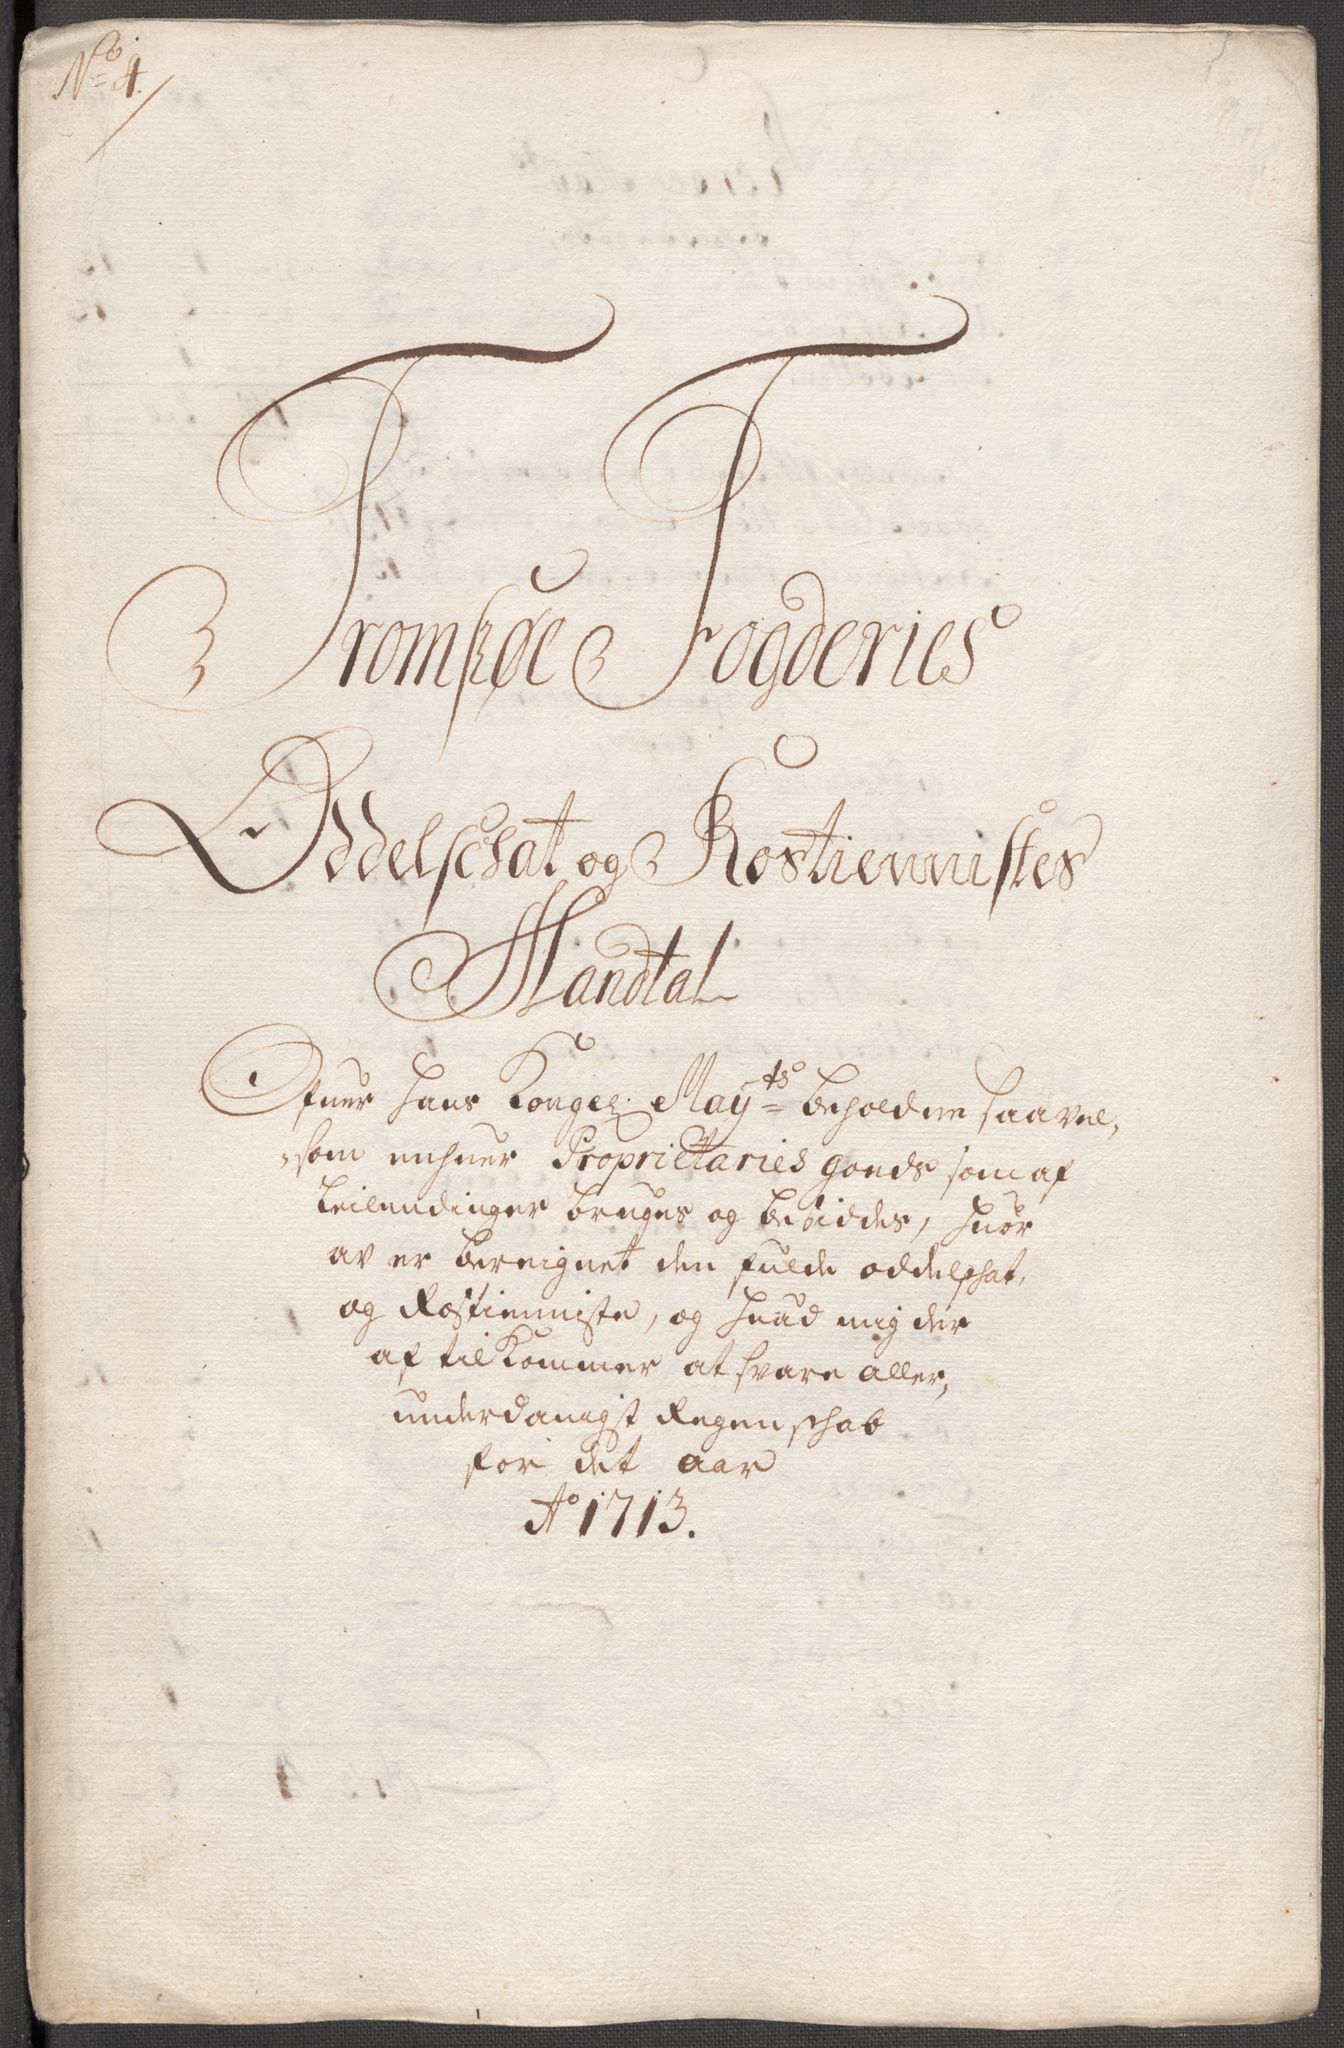 No 4.
Tromsøe Fogderies
Oddelschat og Rostiennistes
Mandtal
Ofuer hans Kongel. Mayts beholdne saavel,
som enhuer Proprietaries goeds som af
Leilendinger bruges og besiddes, huor
av er bereignet den fulde oddelschat,
og Rostienniste, og huad mig der
af tilkommer at svare aller,
underdanigst Regenschab
for det aar
Ao 1713.